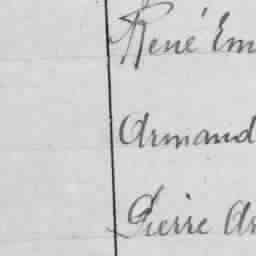 René Em
Armand
Pierre Ar